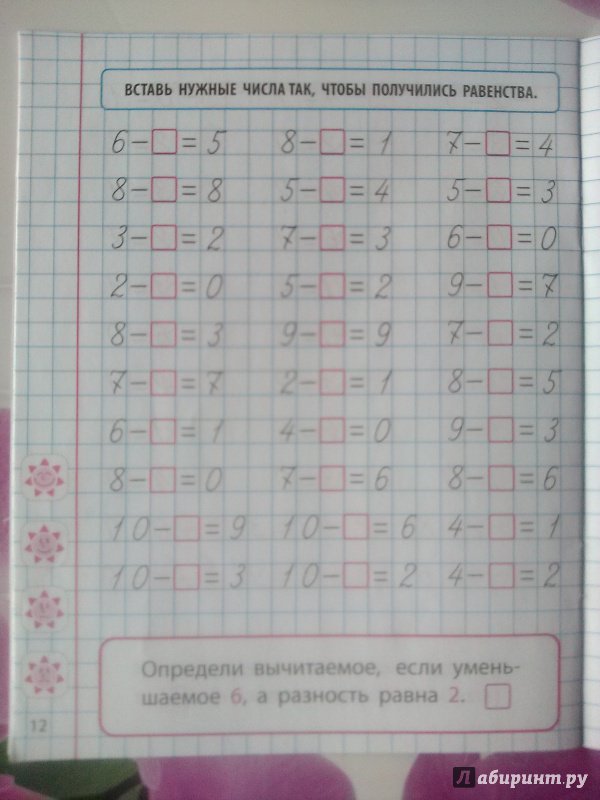 ВСТАВЬ НУЖНЫЕ ЧИСЛА ТАК, ЧТОБЫ ПОЛУЧИЛИСЬ РАВЕНСТВА.
6-□=5 8-□=1 7-□=4
8-□=8 5-□=4 5-□=3
3-□=2 7-□=3 6-□=0
2-□=0 5-□=2 9-□=7
8-□=3 9-□=9 7-□=2
7-□=7 2-□=1 8-□=5
6-□=1 4-□=0 9-□=3
8-□=0 7-□=6 8-□=6
10-□=9 10-□=6 4-□=1
10-□=3 10-□=2 4-□=2
Определи вычитаемое, если умень-
шаемое 6, а разность равна 2. □
12
Лабиринт.ру